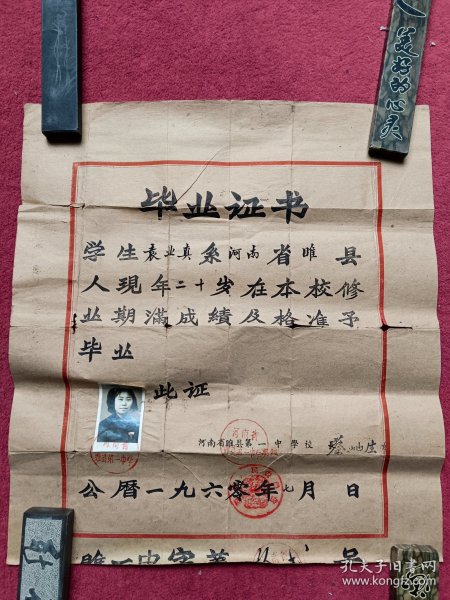 美好的心灵
毕业证书
学生袁业真系河南省睢县
人現年二十岁在本校修
业期满成績及格准予
毕业
此证
河南省睢县第一中学校
公曆一九六零年七月 日
睢一中字第
号
孔夫子旧书网